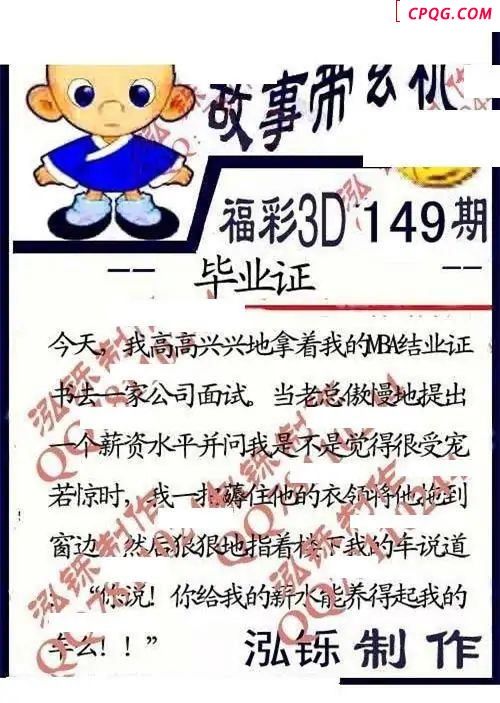 CPQG.COM
故事带玄机
福彩3D 149期
-- 毕业证 --
今天，我高高兴兴地拿着我的MBA结业证
书去一家公司面试。当老总傲慢地提出
一个薪资水平并问我是不是觉得很受宠
若惊时，我一把薅住他的衣领将他拖到
窗边，然后狠狠地指着楼下我的车说道
：“你说！你给我的薪水能养得起我的
车么！！”
泓铄制作
泓铄制作
泓铄制作